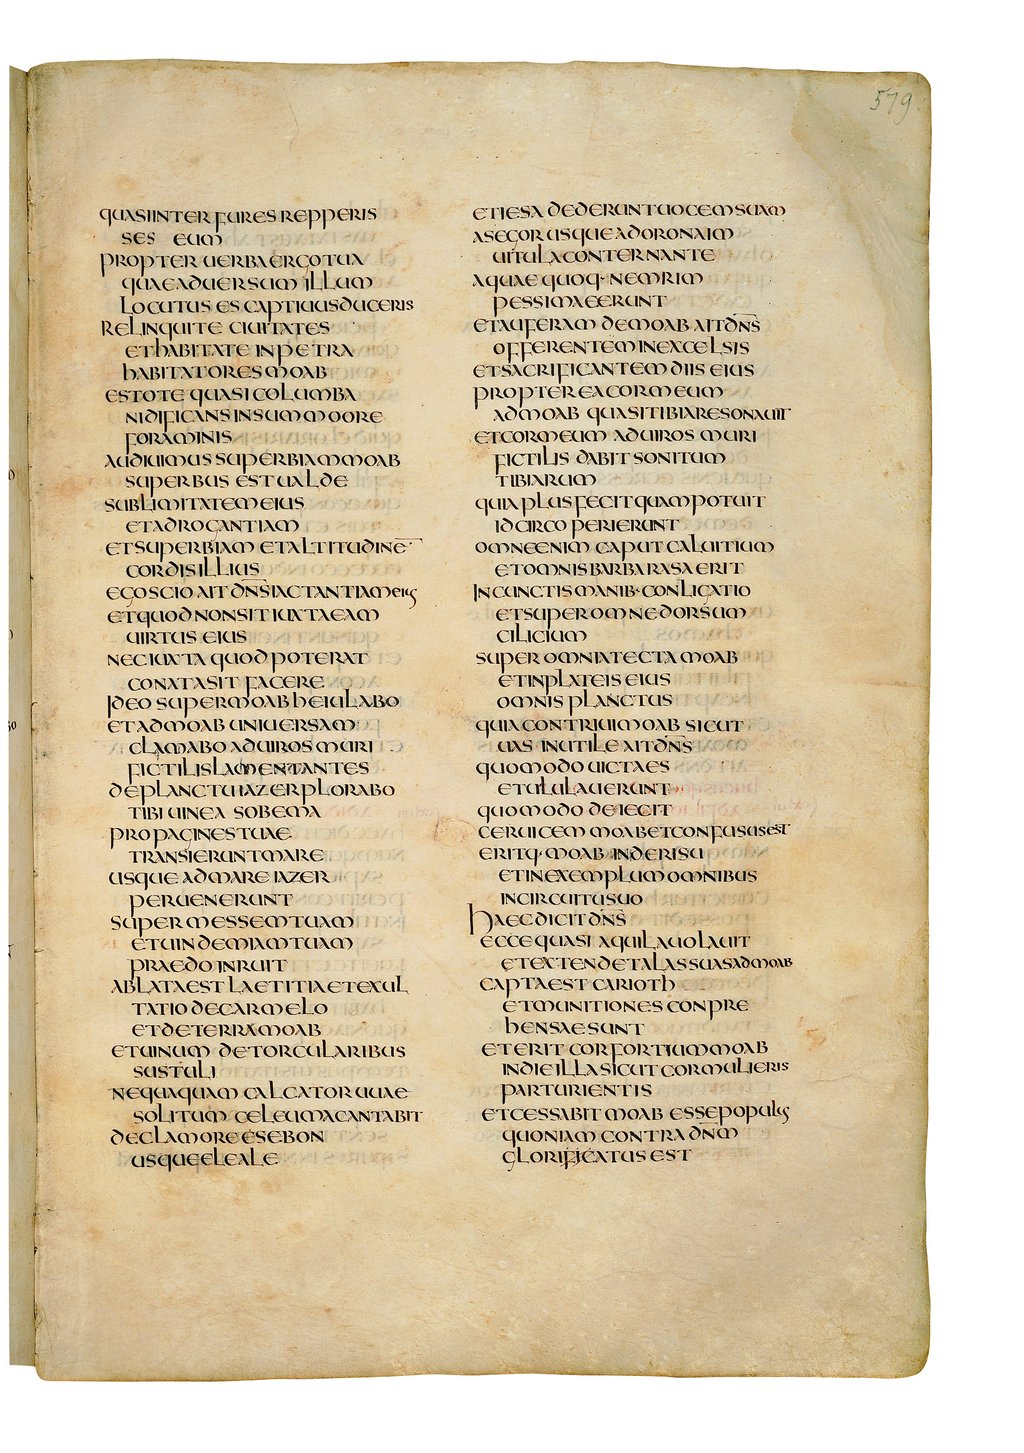 579
QUASI INTER FURES REPPERIS
SES EUM
PROPTER UERBA ERGO TUA
QUAE ADUERSUM ILLUM
LOCUTUS ES CAPTIUUS DUCERIS
RELINQUITE CIUITATES
ET HABITATE IN PETRA
HABITATORES MOAB
ESTOTE QUASI COLUMBA
NIDIFICANS IN SUMMO ORE
FORAMINIS
AUDIUIMUS SUPERBIAM MOAB
SUPERBUS EST UALDE
SUBLIMITATEM EIUS
ET ADROGANTIAM
ET SUPERBIAM ET ALTITUDINĒ
CORDIS ILLIUS
EGO SCIO AIT DN̄S IACTANTIAM EIUS
ET QUOD NON SIT IUXTA EAM
UIRTUS EIUS
NEC IUXTA QUOD POTERAT
CONATA SIT FACERE
IDEO SUPER MOAB HEIULABO
ET AD MOAB UNIUERSAM
CLAMABO AD UIROS MURI
FICTILIS LAMENTANTES
DE PLANCTU IAZER PLORABO
TIBI UINEA SOBEMA
PROPAGINES TUAE
TRANSIERUNT MARE
USQUE AD MARE IAZER
PERUENERUNT
SUPER MESSEM TUAM
ET UINDEMIAM TUAM
PRAEDO INRUIT
ABLATA EST LAETITIA ET EXUL
TATIO DE CARMELO
ET DE TERRA MOAB
ET UINUM DE TORCULARIBUS
SUSTULI
NEQUAQUAM CALCATOR UUAE
SOLITUM CELEUMA CANTABIT
DE CLAMORE ESEBON
USQUE ELEALE
ET IESA DEDERUNT UOCEM SUAM
A SEGOR USQUE AD ORONAIM
UITULA CONTERNANTE
AQUAE QUOQ· NEMRIM
PESSIMAE ERUNT
ET AUFERAM DE MOAB AIT DN̄S
OFFERENTEM IN EXCELSIS
ET SACRIFICANTEM DIIS EIUS
PROPTEREA COR MEUM
AD MOAB QUASI TIBIA RESONAUIT
ET COR MEUM AD UIROS MURI
FICTILIS DABIT SONITUM
TIBIARUM
QUIA PLUS FECIT QUAM POTUIT
IDCIRCO PERIERUNT
OMNE ENIM CAPUT CALUITIUM
ET OMNIS BARBA RASA ERIT
IN CUNCTIS MANIB· CONLIGATIO
ET SUPER OMNE DORSUM
CILICIUM
SUPER OMNIA TECTA MOAB
ET IN PLATEIS EIUS
OMNIS PLANCTUS
QUIA CONTRIUI MOAB SICUT
UAS INUTILE AIT DN̄S
QUOMODO UICTA ES
ET ULULAUERUNT
QUOMODO DEIECIT
CERUICEM MOAB ET CONFUSUS EST
ERITQ· MOAB IN DERISU
ET IN EXEMPLUM OMNIBUS
IN CIRCUITU SUO
HAEC DICIT DN̄S
ECCE QUASI AQUILA UOLAUIT
ET EXTENDET ALAS SUAS AD MOAB
CAPTA EST CARIOTH
ET MUNITIONES CONPRE
HENSAE SUNT
ET ERIT COR FORTIUM MOAB
IN DIE ILLA SICUT COR MULIERIS
PARTURIENTIS
ET CESSABIT MOAB ESSE POPULUS
QUONIAM CONTRA DN̄M
GLORIFICATUS EST